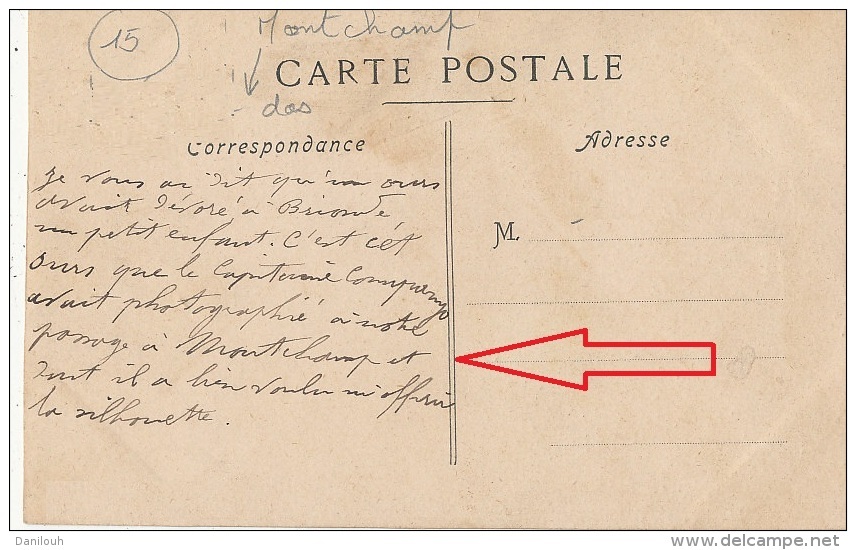 15
Montchamp
CARTE POSTALE
dos
Correspondance
Adresse
Je vous ai dit qu'un ours
avait dévoré à Brioude
un petit enfant. C'est cet
ours que le Capitaine
avait photographié à notre
passage à Montchamp et
dont il a bien voulu m'offrir
la silhouette.
M.
Danilouh
www.delcampe.net